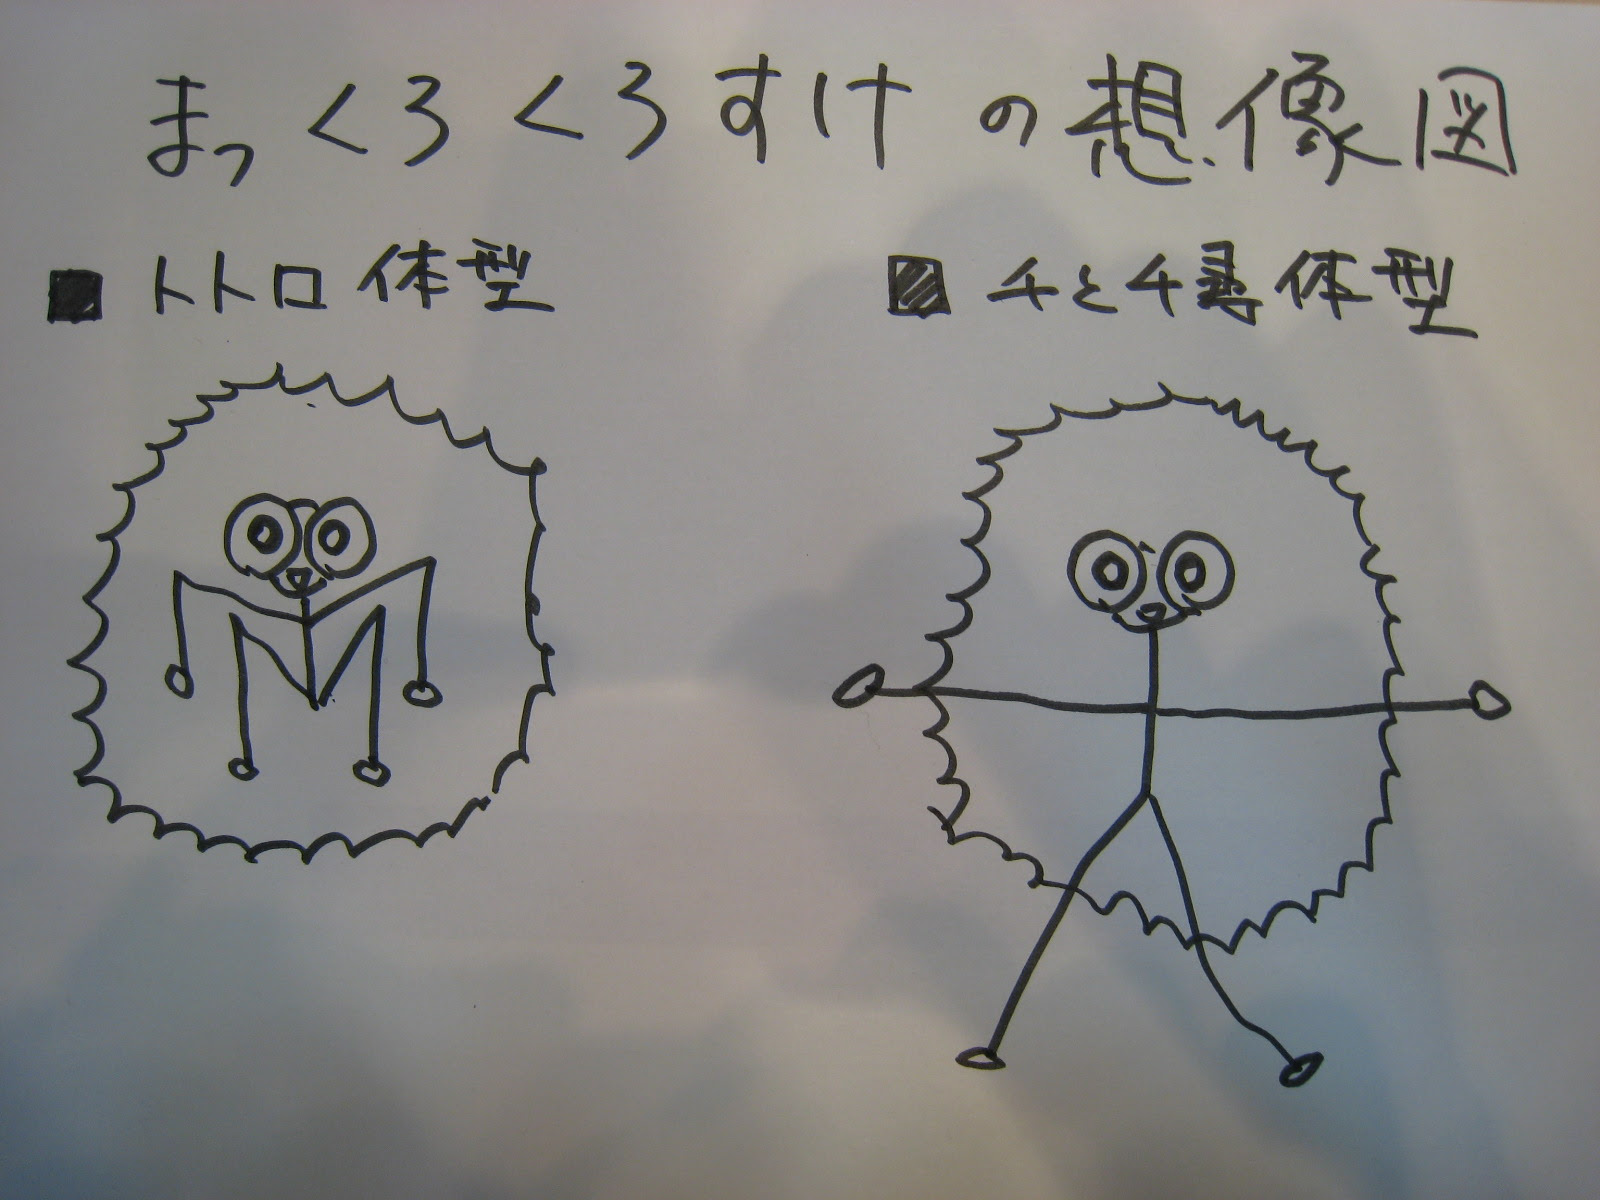 まっくろくろすけの想像図
■トトロ体型
■千と千尋体型